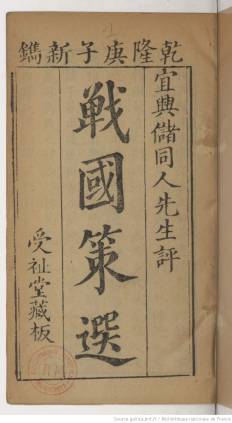 乾隆庚子新鐫
宜興儲同人先生評
戰國策選
受祉堂藏板
Source gallica.bnf.fr / Bibliothèque nationale de France